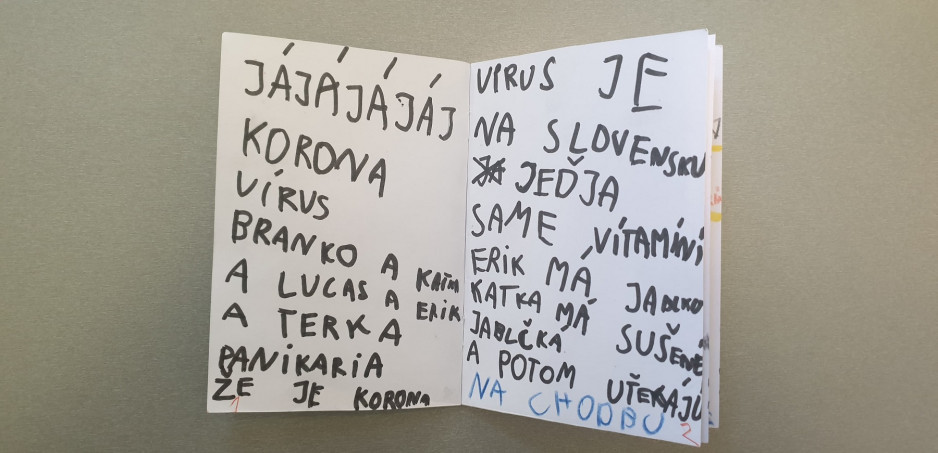 JÁJÁJÁJÁJ
KORONA
VÍRUS
BRANKO A KATKA
A LUCAS A ERIK
A TERKA
PANiKARiA
ŽE JE KORONA
1
VIRUS JE
NA SLOVENSKU
JEĎJA
SAME VÍTAMÍNÍ
ERIK MÁ JABLKO
KATKA MÁ SUŠENÉ
JABLČKÁ
A POTOM UŤEKAJÚ
NA CHODBU 2